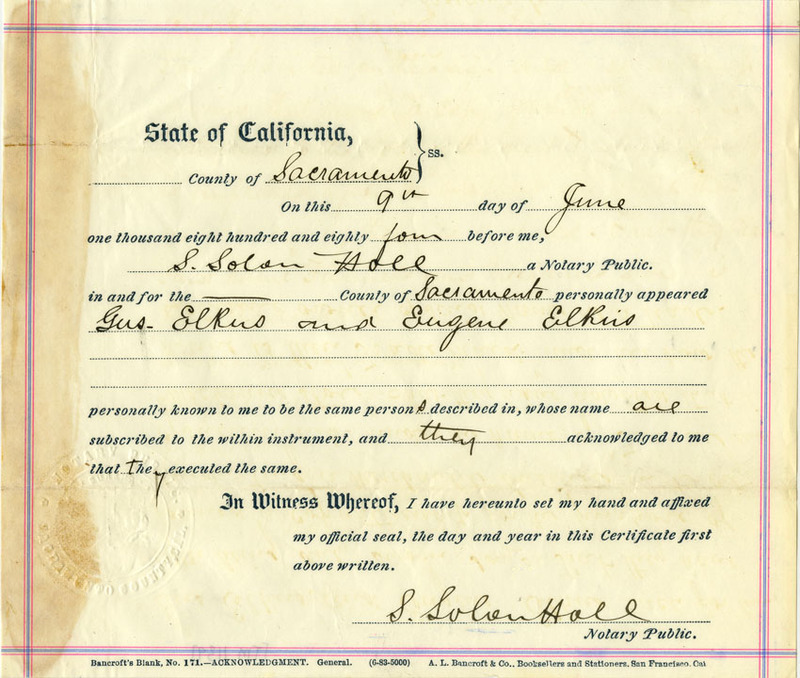 State of California, } ss.
County of Sacramento
On this 9th day of June
one thousand eight hundred and eighty four before me,
S. Solon Holl a Notary Public.
in and for the County of Sacramento personally appeared
Gus. Elkus and Eugene Elkus
personally known to me to be the same persons described in, whose name are
subscribed to the within instrument, and they acknowledged to me
that They executed the same.
In Witness Whereof, I have hereunto set my hand and affixed
my official seal, the day and year in this Certificate first
above written.
S. Solon Holl
Notary Public.
Bancroft's Blank, No. 171.—ACKNOWLEDGMENT. General. (6-83-5000) A. L. Bancroft & Co., Booksellers and Stationers, San Francisco, Cal